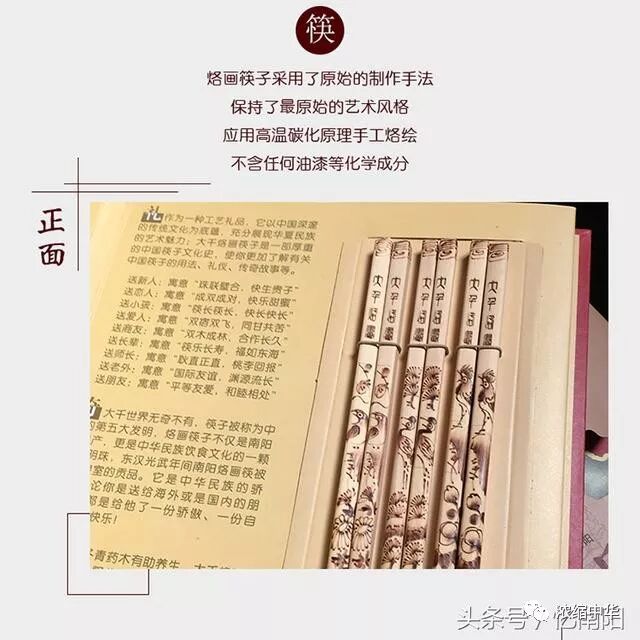 筷
烙画筷子采用了原始的制作手法
保持了最原始的艺术风格
应用高温碳化原理手工烙绘
不含任何油漆等化学成分
正面
礼作为一种工艺礼品,它以中国深邃
的传统文化为底蕴,充分展现华夏民族
的艺术魅力;大千烙画筷子是一部厚重
的中国筷子文化史,使你更加了解有关
中国筷子的用法、礼仪、传奇故事等。
送新人:寓意“珠联璧合,快生贵子”
送恋人:寓意“成双成对,快乐甜蜜”
送小孩:寓意“筷长筷长,快长快长”
送爱人:寓意“双宿双飞,同甘共苦”
送商友:寓意“双木成林,合作长久”
送长辈:寓意“筷乐长寿,福如东海”
送师长:寓意“耿直正直,桃李回报”
送老外:寓意“国际友谊,渊源流长”
送朋友:寓意“平等友爱,和睦相处”
大千世界无奇不有,筷子被称为中
的第五大发明,烙画筷子不仅是南阳
产,更是中华民族饮食文化的一颗
明珠,东汉光武年间南阳烙画筷被
室的贡品。它是中华民族的骄
论你是送给海外或是国内的朋
都是给他了一份骄傲、一份自
快乐!
冬青药木有助养生,大千
大千烙畫
大千烙畫
大千烙畫
大千烙畫
大千烙畫
大千烙畫
浓缩中华
头条号/亿南阳